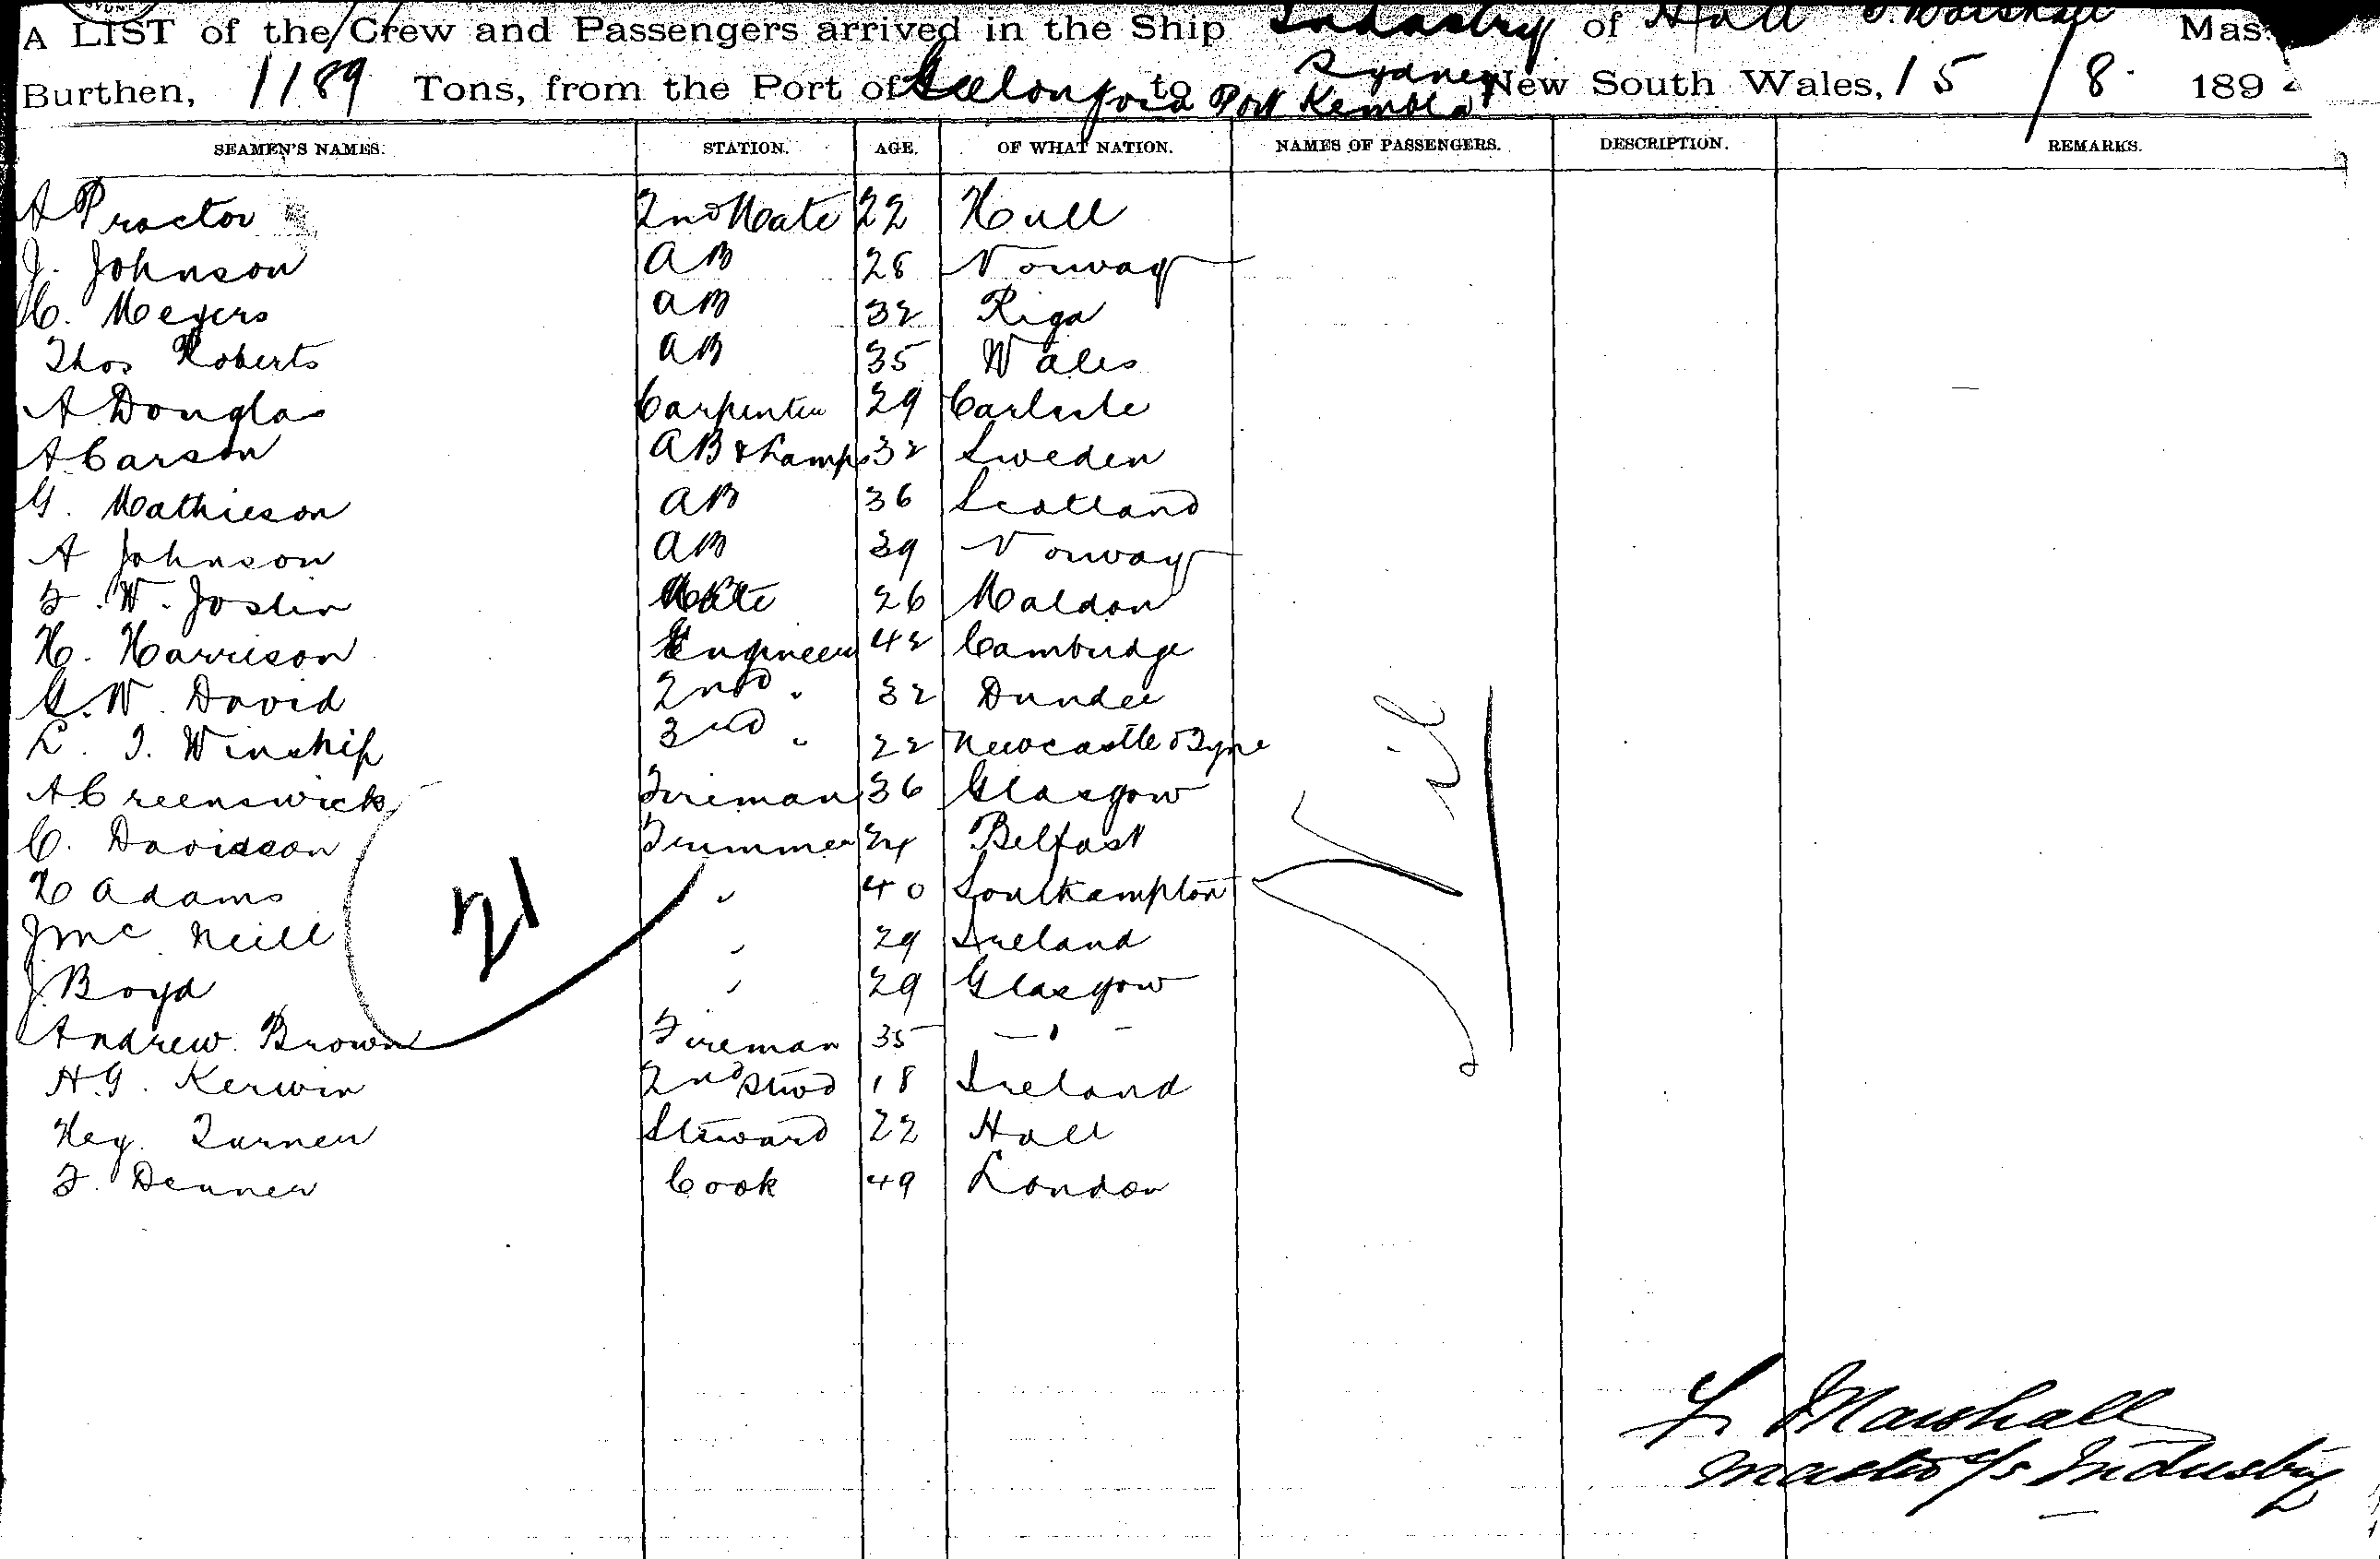 SYDNEY
A LIST of the Crew and Passengers arrived in the Ship Industry of Hull Marshall Mas
Burthen, 1189 Tons, from the Port of Geelong via Port Kembla to Sydney New South Wales, 15/8. 189
SEAMEN'S NAMES. STATION. AGE. OF WHAT NATION. NAMES OF PASSENGERS. DESCRIPTION. REMARKS.
A Proctor 2nd Mate 22 Hull
J. Johnson AB 28 Norway
H. Meyers AB 32 Riga
Thos Roberts AB 35 Wales
A Douglas Carpenter 29 Carlisle
A Carson AB & Lamps 32 Sweden
G. Mathieson AB 36 Scotland
A Johnson AB 39 Norway
F. W. Joslin Mate 26 Maldon
H. Harrison Engineer 42 Cambridge
G. W. David 2nd " 32 Dundee
L. T. Winship 3rd " 22 Newcastle o Tyne
A Creenswick Fireman 36 Glasgow
C. Davidson Trimmer 24 Belfast
H Adams " 40 Southampton
J Mc Neill " 29 Ireland
J. Boyd " 29 Glasgow
Andrew Brown Fireman 35 — " —
H. G. Kerwin 2nd Stwd 18 Ireland
Hey. Turner Steward 22 Hull
F. Denner Cook 49 London
21
Nil
L Marshall
Master s/s Industry